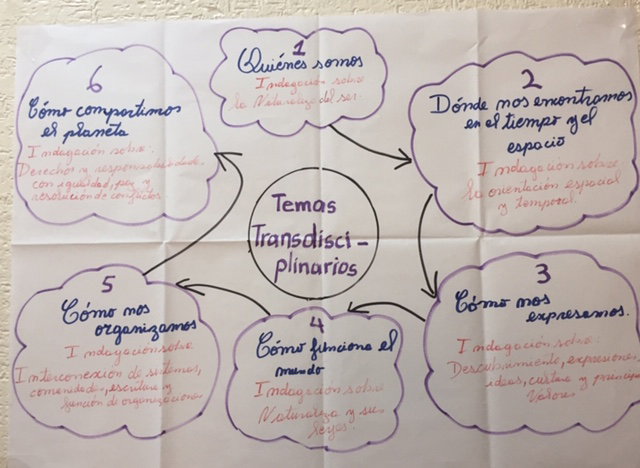 Temas
Transdisci-
plinarios
1
Quiénes somos
Indagación sobre
la Naturaleza del ser.
2
Dónde nos encontramos
en el tiempo y el
espacio
Indagación sobre
la orientación espacial
y temporal.
3
Cómo nos
expresamos.
Indagación sobre:
Descubrimiento, expresiones,
ideas, cultura y
Valores
4
Cómo funciona el
mundo
Indagación sobre
Naturaleza y sus
leyes.
5
Cómo nos
organizamos
Indagación sobre
Interconexión de sistemas,
comunidades, y
función de organizaciones
6
Cómo compartimos
el planeta
Indagación sobre:
Derechos y responsabilidades
con igualdad, paz y
resolución de conflictos